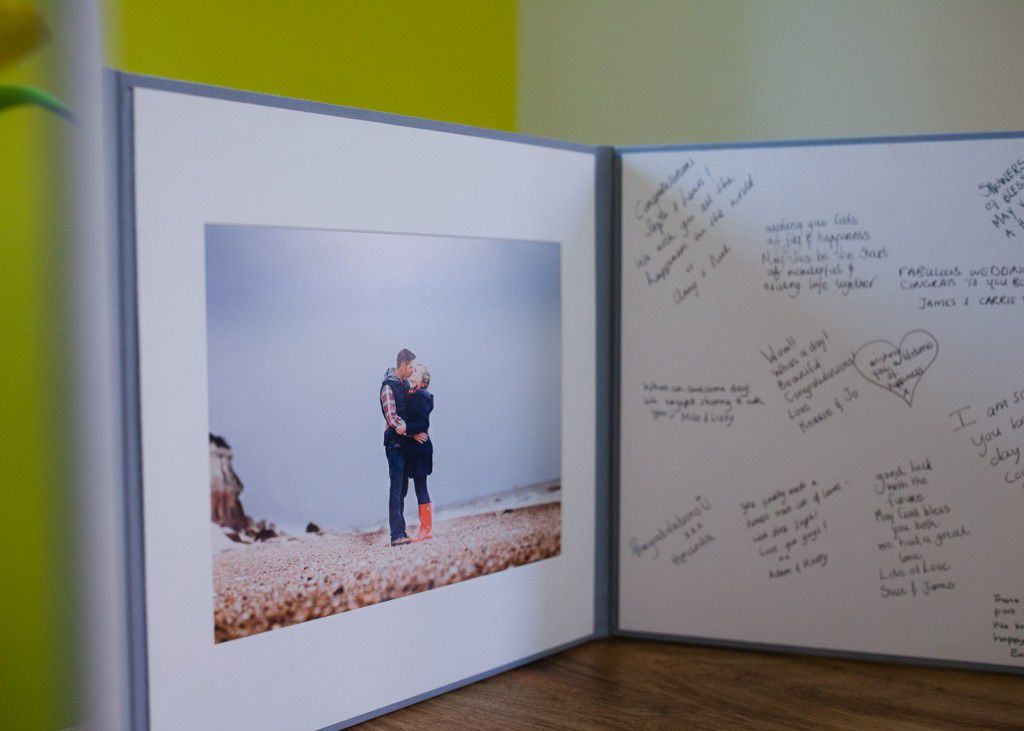 Congratulations
Steph & Lewis!
We wish you all the
happiness in the world
Amy & Nick
wishing you lots
of joy & happiness.
May this be the start
of wonderful &
exciting life together
SHOWERS
OF BLESS
MAY
A
FABULOUS WEDDING
CONGRATS TO YOU BO
JAMES & CARRIE
Wow!!
What a day!
Beautiful
Congratulations!
Love
& Jo
wishing
you a lifetime
of
happiness
x
What an awesome day!
We enjoyed sharing it with
you - Mike & Lizzy
I am so
you bo
day
co
Congratulations
xxx
Amanda
you finally made a
man out of Lewis -
well done Steph!
Love you guys!
Adam &
good luck
with the
future
May God bless
you both
we had a great
time
Lots of Love
Sue & James
Thank
part